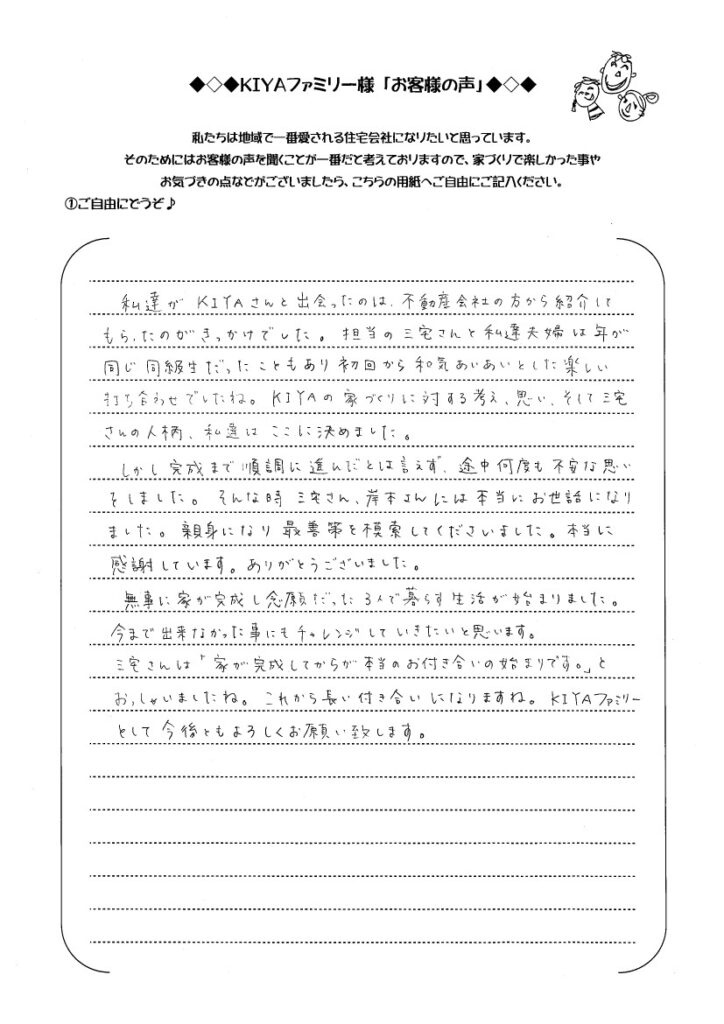 ◆◇◆KIYAファミリー様「お客様の声」◆◇◆
私たちは地域で一番愛される住宅会社になりたいと思っています。
そのためにはお客様の声を聞くことが一番だと考えておりますので、家づくりで楽しかった事や
お気づきの点などがございましたら、こちらの用紙へご自由にご記入ください。
①ご自由にどうぞ♪
私達が KIYAさんと出会ったのは、不動産会社の方から紹介して
もらったのがきっかけでした。担当の三宅さんと私達夫婦は年が
同じ同級生だったこともあり初回から和気あいあいとした楽しい
打ち合わせでしたね。KIYAの家づくりに対する考え、思い、そして三宅
さんの人柄、私達はここに決めました。
しかし完成まで順調に進んだとは言えず、途中何度も不安な思い
をしました。そんな時三宅さん、岸本さんには本当にお世話になり
ました。親身になり最善策を模索してくださいました。本当に
感謝しています。ありがとうございました。
無事に家が完成し念願だった3人で暮らす生活が始まりました。
今まで出来なかった事にもチャレンジしていきたいと思います。
三宅さんは「家が完成してからが本当のお付き合いの始まりです。」と
おっしゃいましたね。これから長い付き合いになりますね。KIYAファミリー
として今後ともよろしくお願い致します。